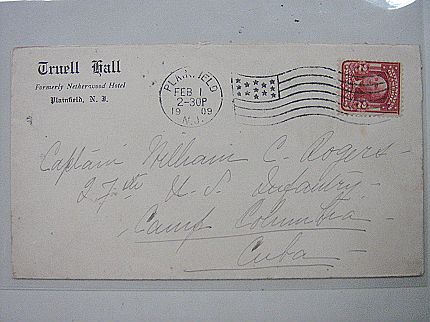 Truell Hall
Formerly Netherwood Hotel
Plainfield, N. J.
PLAINFIELD
FEB 1
2-30P
19 09
N.J.
2 2
Captain William C. Rogers
27th U.S. Infantry
Camp Columbia
Cuba